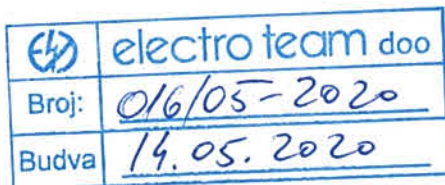 electro team doo
Broj: 016/05-2020
Budva 14.05.2020